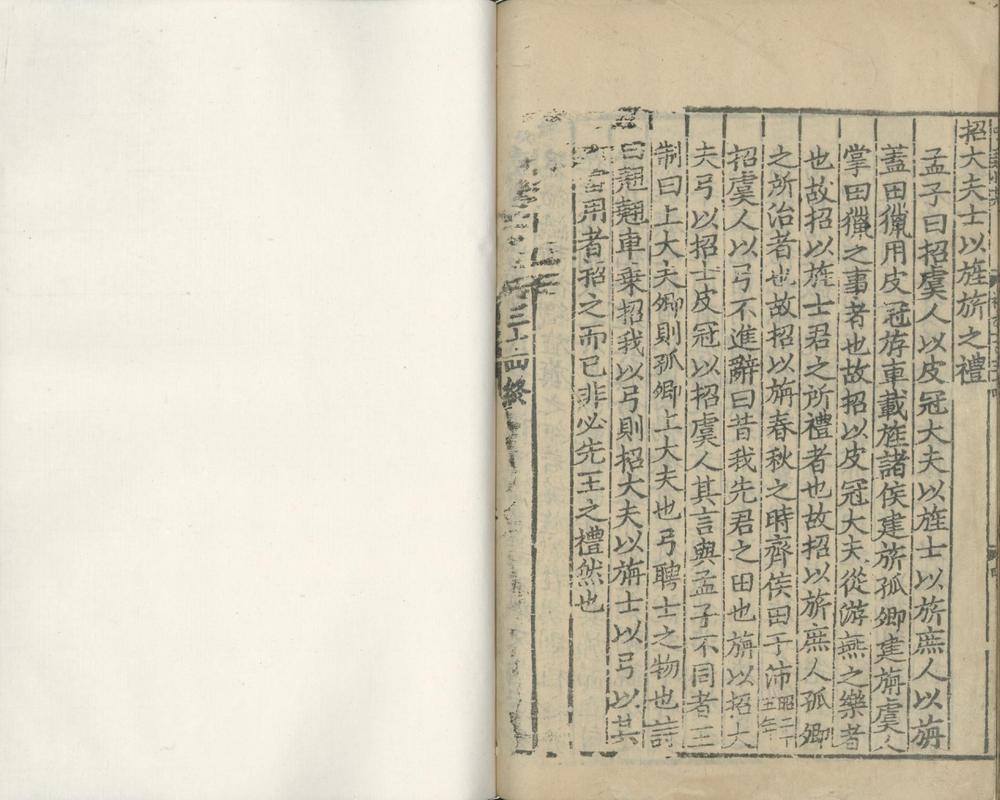 招大夫士以旌旂之禮
孟子曰招虞人以皮冠大夫以旌士以旂庶人以旃
蓋田獵用皮冠斿車載旌諸侯建旂孤卿建旃虞人
掌田獵之事者也故招以皮冠大夫從游燕之樂者
也故招以旌士君之所禮者也故招以旂庶人孤卿
之所治者也故招以旃春秋之時齊侯田于沛昭二十五年
招虞人以弓不進辭曰昔我先君之田也旃以招大
夫弓以招士皮冠以招虞人其言與孟子不同者王
制曰上大夫卿則孤卿上大夫也弓聘士之物也詩
曰翹翹車乗招我以弓則招大夫以旃士以弓以其
用者招之而已非必先王之禮然也
三十四終